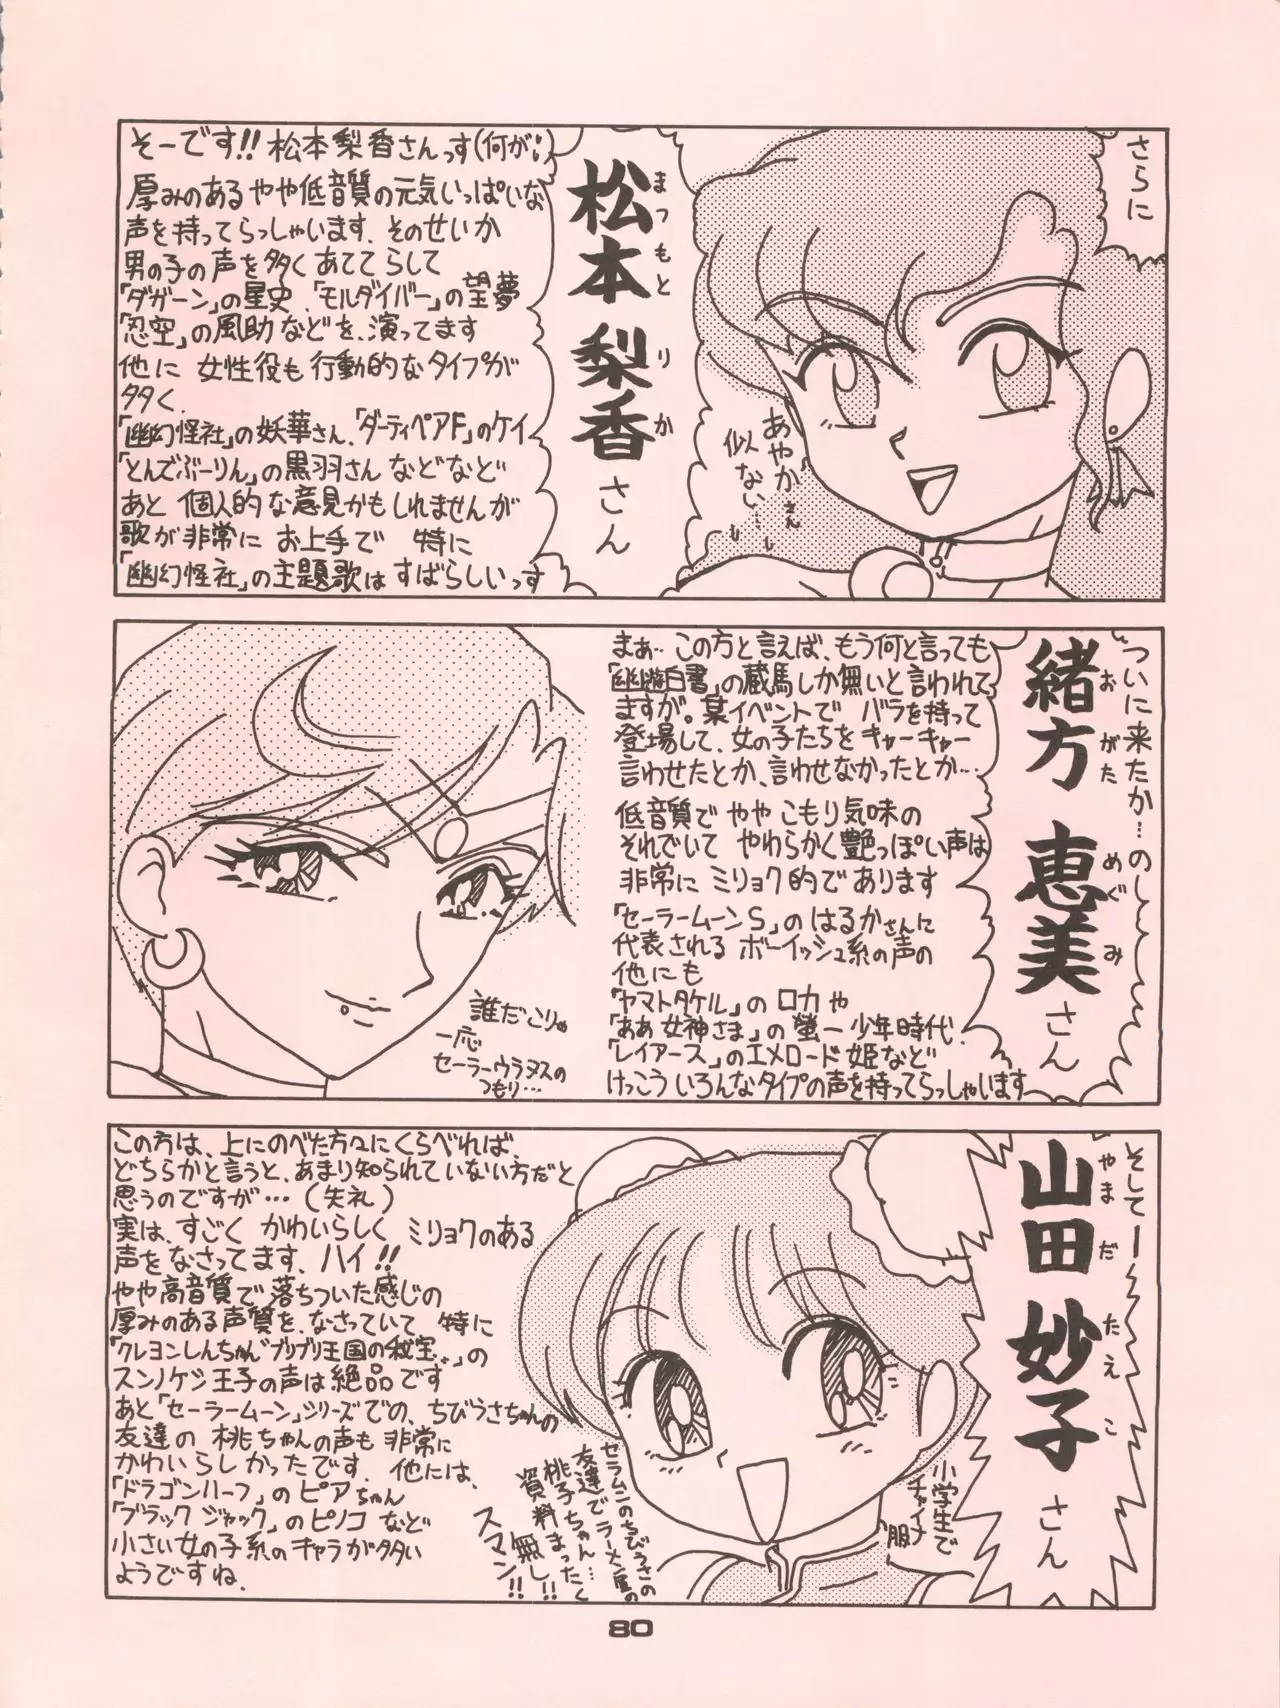 さらに
松本梨香さん
まつもとりか
そーです!!松本梨香さんっす(何が!)
厚みのあるやや低音質の元気いっぱいな
声を持ってらっしゃいます、そのせいか
男の子の声を多くあててらして
「ダガーン」の星史、「モルダイバー」の望夢
「忍空」の風助などを、演ってます
他に女性役も行動的なタイプが
多く、
「幽幻怪社」の妖華さん、「ダーティペアF」のケイ
「とんでぶーりん」の黒羽さんなどなど
あと個人的な意見かもしれませんが
歌が非常にお上手で特に
「幽幻怪社」の主題歌はすばらしいっす
あやかさん
似てない…
ついに来たか…のし
緒方恵美さん
おがためぐみ
まぁ…この方と言えば、もう何と言っても
「幽遊白書」の蔵馬しか無いと言われて
ますが。某イベントでバラを持って
登場して、女の子たちをキャーキャー
言わせたとか、言わせなかったとか…
低音質でややこもり気味の
それでいてやわらかく艶っぽい声は
非常にミリョク的であります
「セーラームーンS」のはるかさんに
代表されるボーイッシュ系の声の
他にも
「ヤマトタケル」のロカや
「ああ女神さま」の螢一少年時代、
「レイアース」のエメロード姫など
けっこういろんなタイプの声を持ってらっしゃいます
誰だこりゃ
一応
セーラーウラヌスの
つもり…
そしてー
山田妙子さん
やまだたえこ
この方は、上にのべた方々にくらべれば、
どちらかと言うと、あまり知られていない方だと
思うのですが…(失礼)
実は、すごくかわいらしくミリョクのある
声をなさってます、ハイ!!
やや高音質で落ちついた感じの
厚みのある声質を、なさっていて特に
「クレヨンしんちゃん ブリブリ王国の秘宝」の
スンノケシ王子の声は絶品です
あと「セーラームーン」シリーズでの、ちびうさちゃんの
友達の桃ちゃんの声も非常に
かわいらしかったです、他には、
「ドラゴンハーフ」のピアちゃん
「ブラックジャック」のピノコなど
小さい女の子系のキャラが多い
ようですね、
小学生で
チャイナ
服
セラムンのちびうさの
友達でラーメン屋の
桃子ちゃん…
資料まったく
無し!!
スマン!!
80